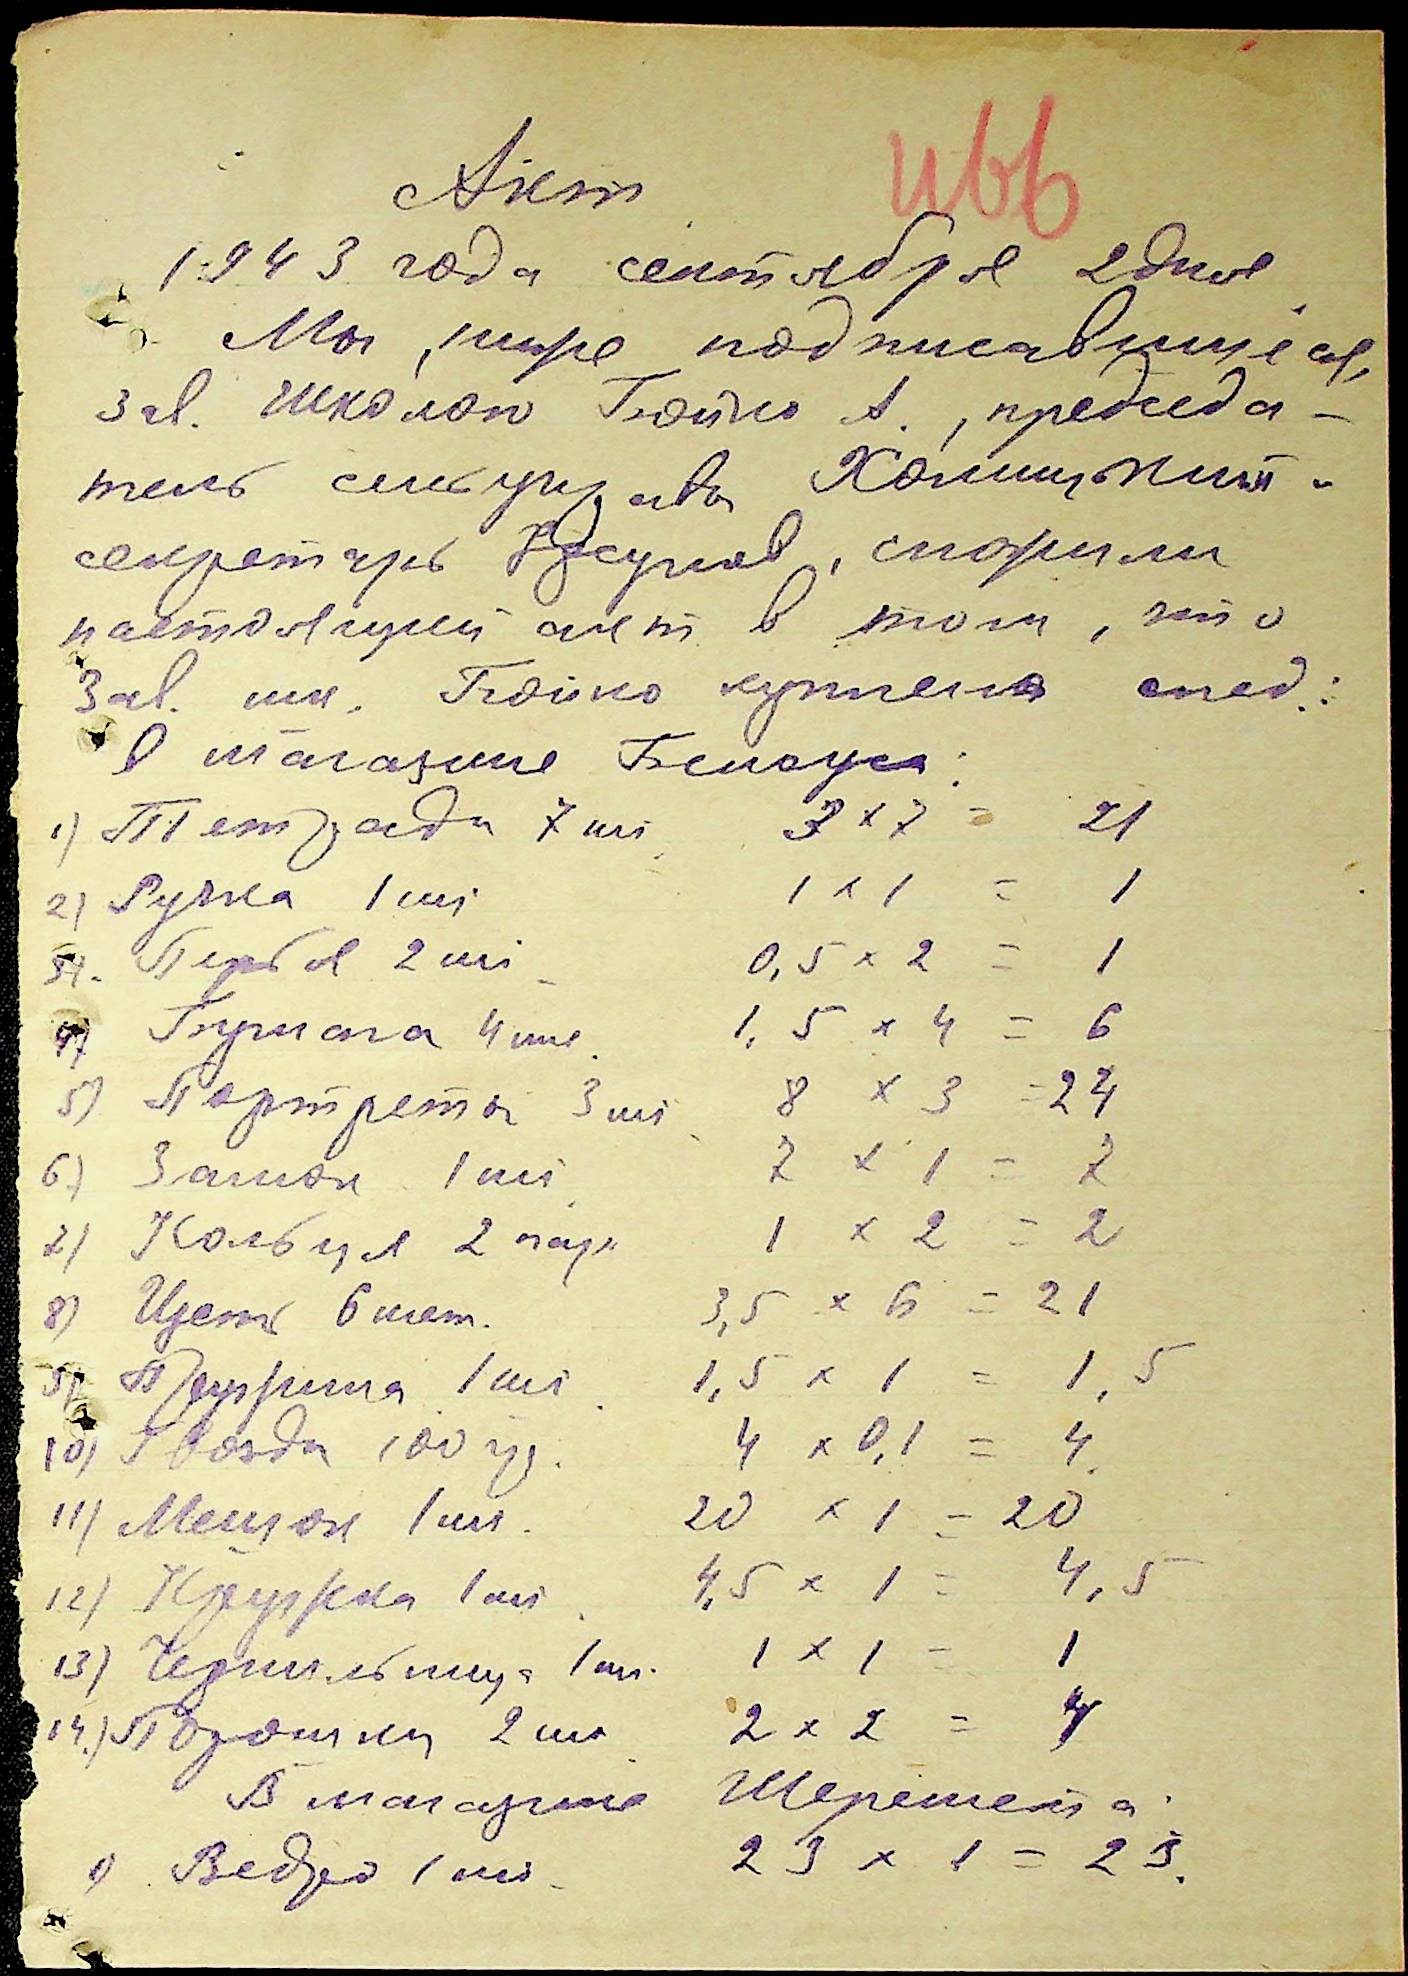 Акт
1943 года сентября 2 дня
Мы, ниже подписавшиеся,
зав. школою Бойко А., председа-
тель сельуправы
секретарь, сложили
настоящий акт в том, что
Зав. шк. Бойко куплено след.:
в магазине Белоуса:
1) Тетради 7 шт. 3 x 7 = 21
2) Ручка 1 шт 1 x 1 = 1
3). Перья 2 шт. 0,5 x 2 = 1
4) Бумага 4 1,5 x 4 = 6
5) Портреты 3 шт. 8 x 3 = 24
6) Замок 1 шт. 7 x 1 = 7
7) Кольца 2 пары 1 x 2 = 2
8) Цепь 6 шт. 3,5 x 6 = 21
9) Пружина 1 шт. 1,5 x 1 = 1,5
10) Гвозди 100 гр. 4 x 0,1 = 4
11) Мешок 1 шт. 20 x 1 = 20
12) Кружка 1 шт. 4,5 x 1 = 4,5
13) Чернильница 1 шт. 1 x 1 = 1
14.) 2 шт. 2 x 2 = 4
В магазине Шеремета:
1) Ведро 1 шт. 23 x 1 = 23.